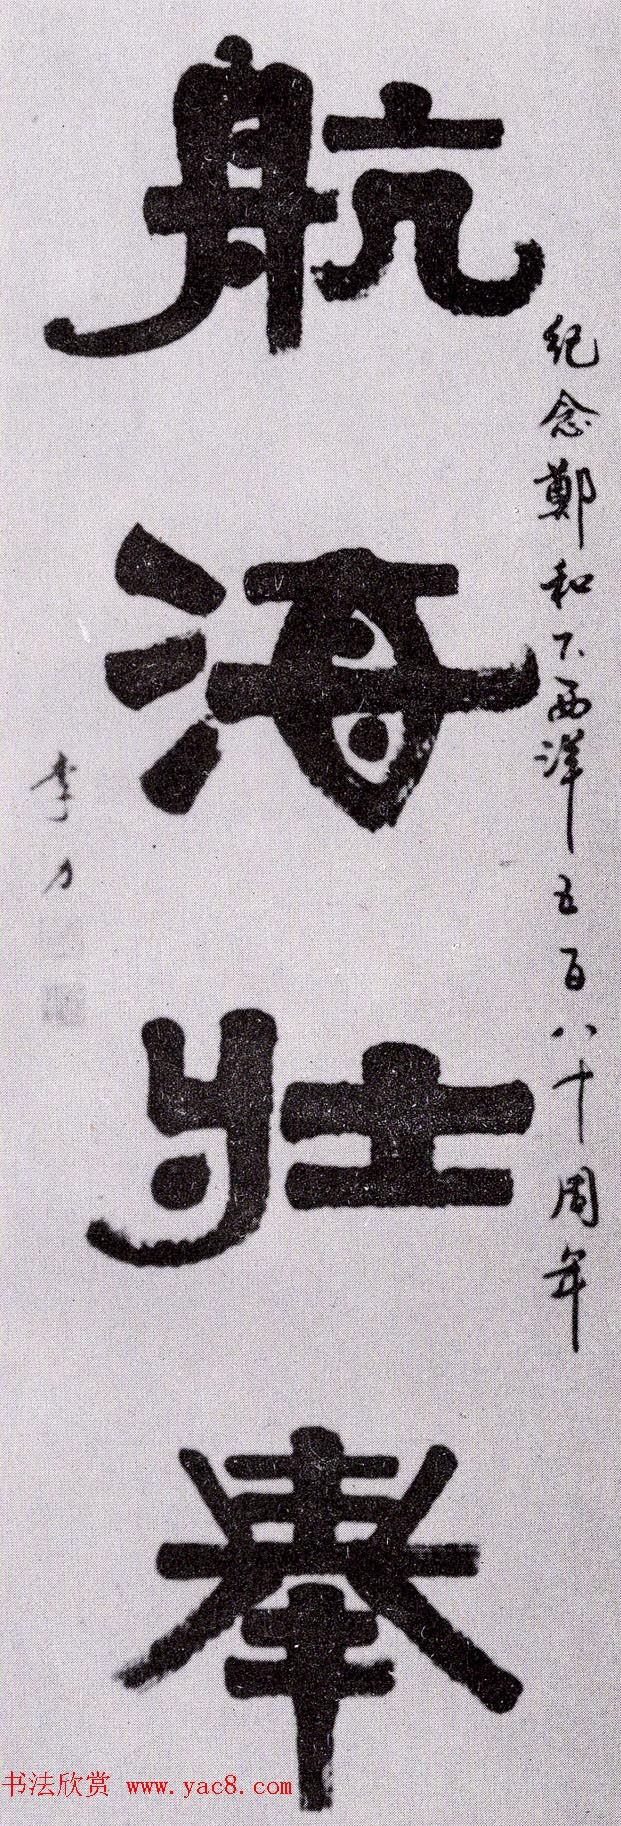 紀念鄭和下西洋五百八十周年
航海壮举
李力
书法欣赏 www.yac8.com